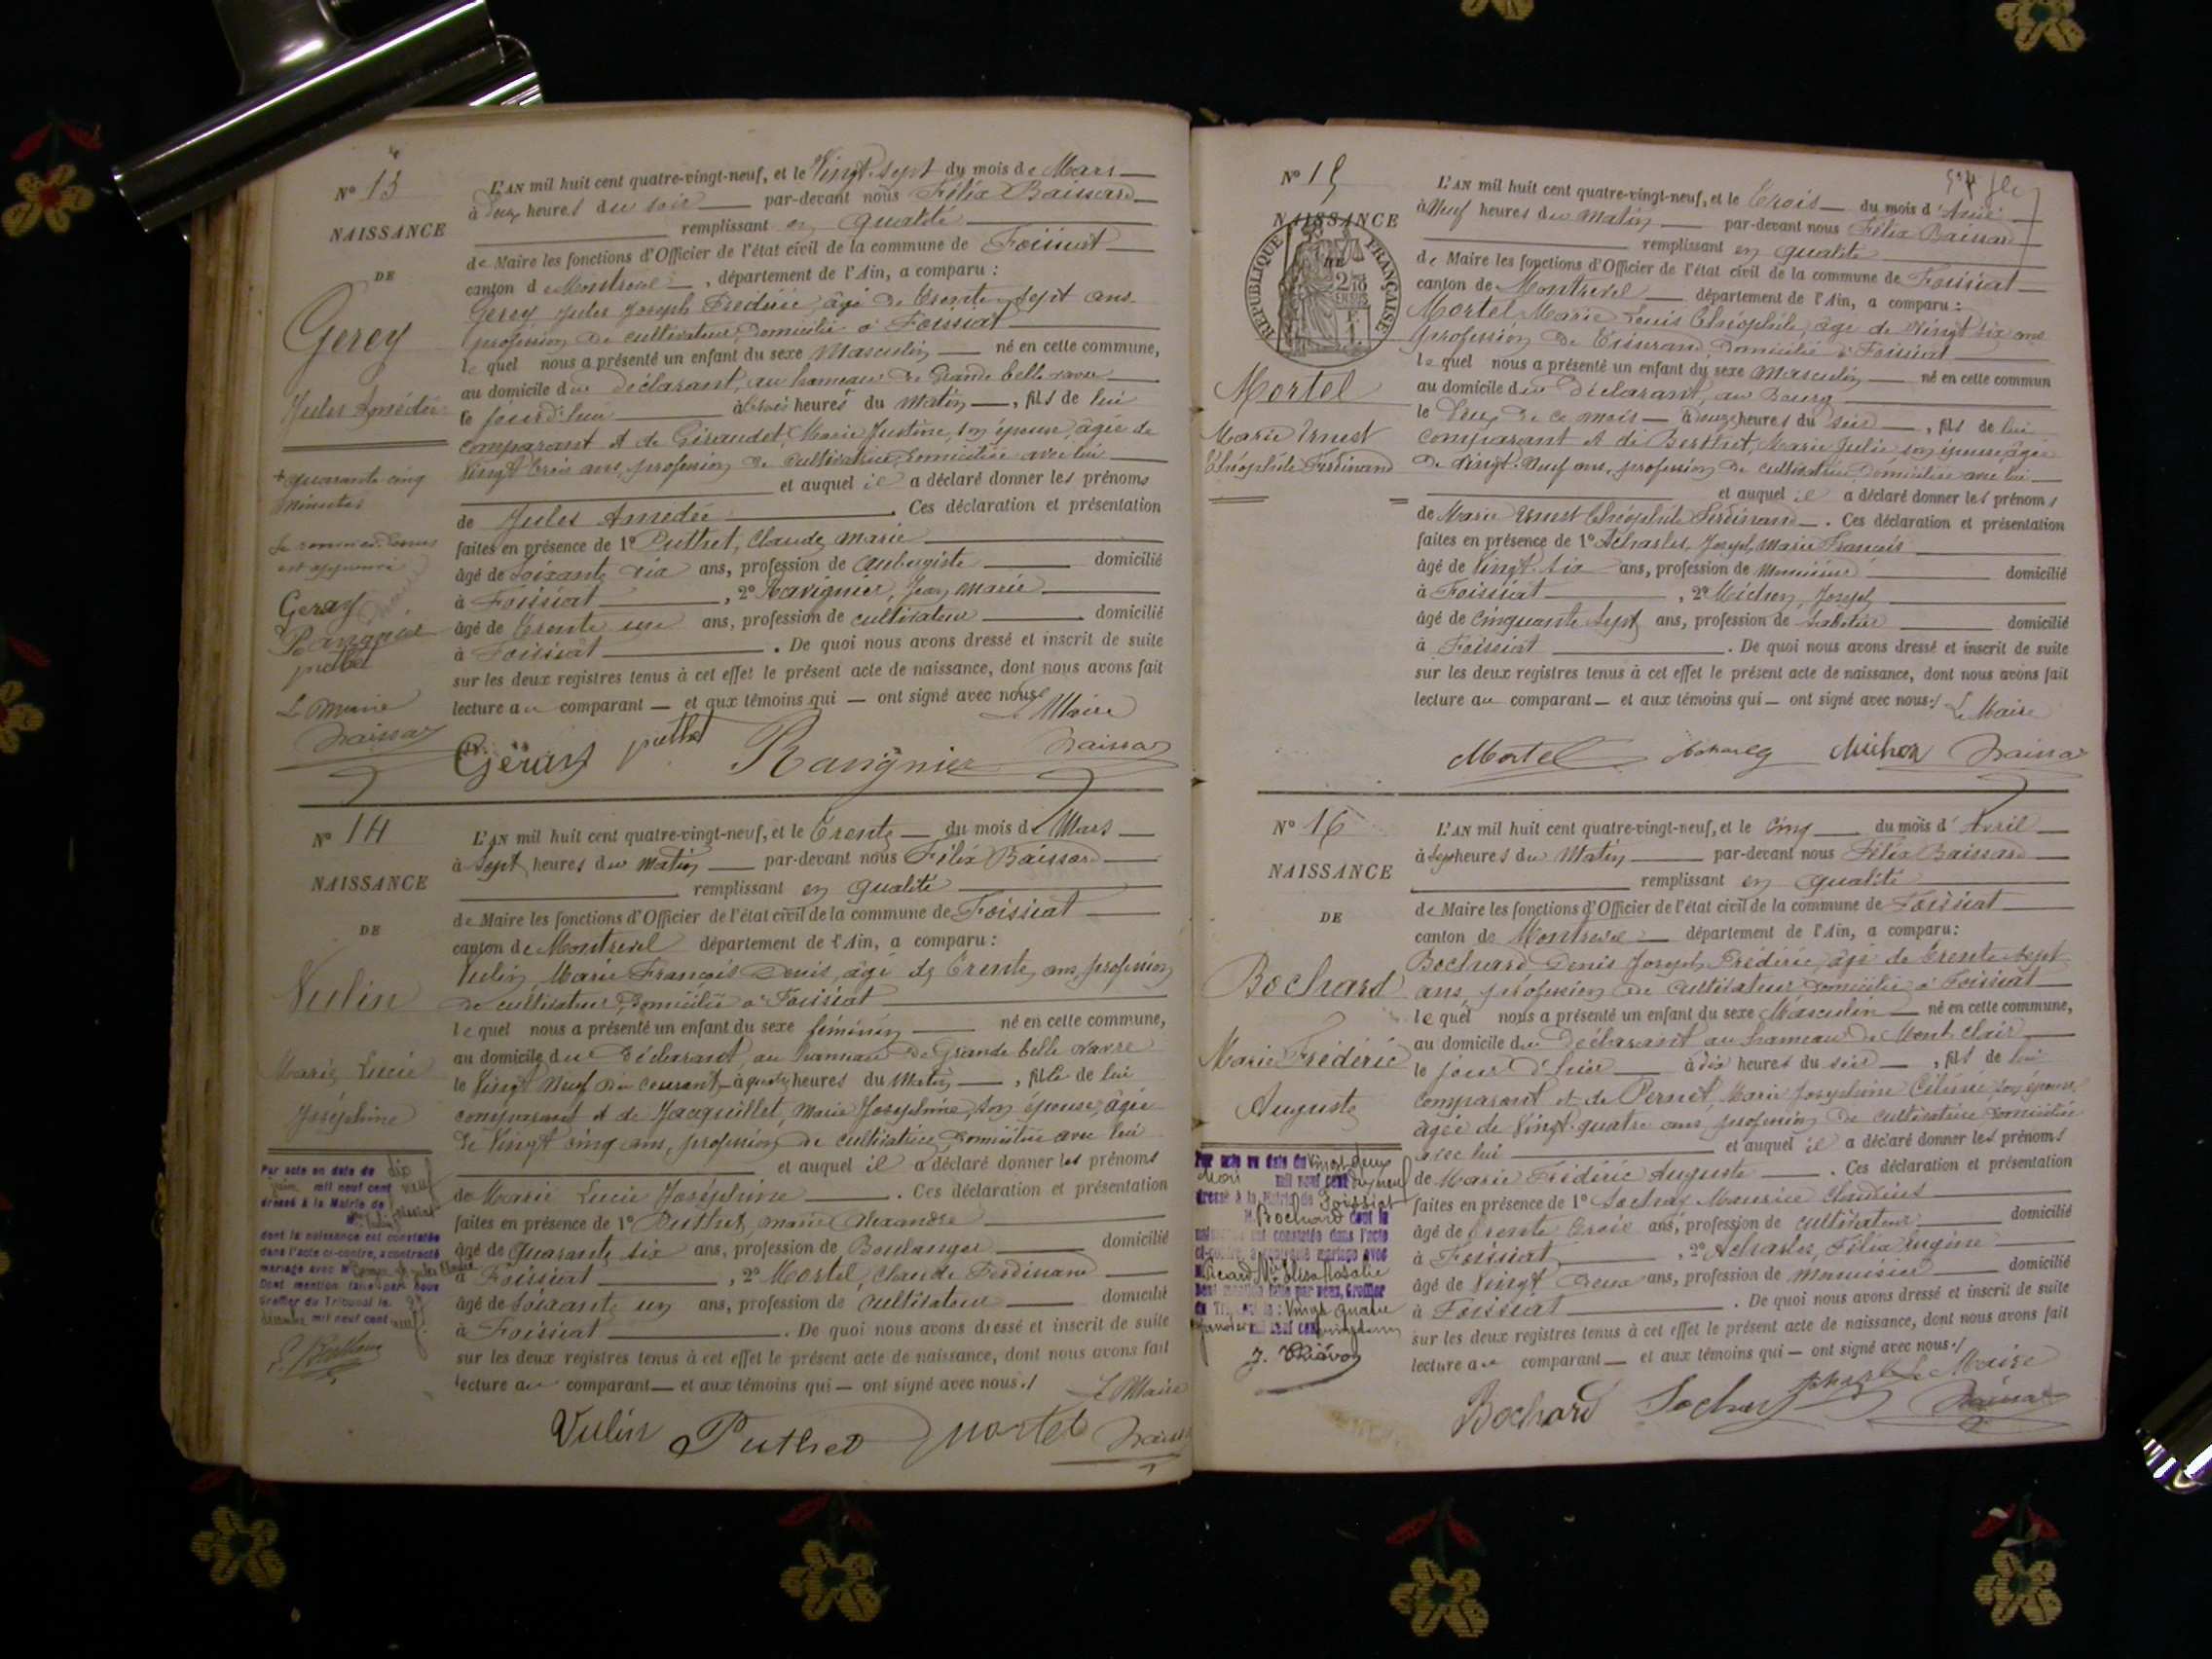 N° 13
NAISSANCE
DE
Gerey
Jules Amédée
+ quarante cinq
minutes
Le renvoi ci-dessus
est approuvé
Geray
Rangnier
puthet
Le Maire
L'AN mil huit cent quatre-vingt-neuf, et le Vingt-sept du mois de Mars
à deux heures du soir par-devant nous Félix Baissard
remplissant en qualité
de Maire les fonctions d'Officier de l'état civil de la commune de Foissiat
canton de Montrevel, département de l'Ain, a comparu :
Gerey Jules Joseph Frédéric, âgé de trente sept ans
profession de cultivateur, domicilié à Foissiat
lequel nous a présenté un enfant du sexe Masculin né en cette commune,
au domicile du déclarant, au hameau de Grande belle vavre
le jourd'hui à trois heures + du matin, fils de lui
comparant et de Giraudet, Marie Justine, son épouse, âgée de
vingt trois ans, profession de cultivatrice, domiciliée avec lui
et auquel il a déclaré donner les prénoms
de Jules Amédée. Ces déclaration et présentation
faites en présence de 1° Puthet, Claude Marie
âgé de soixante six ans, profession de aubergiste domicilié
à Foissiat, 2° Ravignier, Jean Marie
âgé de trente un ans, profession de cultivateur domicilié
à Foissiat. De quoi nous avons dressé et inscrit de suite
sur les deux registres tenus à cet effet le présent acte de naissance, dont nous avons fait
lecture au comparant — et aux témoins qui — ont signé avec nous
Le Maire
Geray puthet Rangnier
N° 14
NAISSANCE
DE
Vulin
Marie Lucie
Joséphine
Par acte en date du dix
juin mil neuf cent neuf
dressé à la Mairie de Foissiat
dont la naissance est constatée
dans l'acte ci-contre, a contracté
mariage avec
Dont mention faite par nous
Greffier du Tribunal le
mil neuf cent neuf
L'AN mil huit cent quatre-vingt-neuf, et le trente du mois de Mars
à sept heures du matin par-devant nous Félix Baissard
remplissant en qualité
de Maire les fonctions d'Officier de l'état civil de la commune de Foissiat
canton de Montrevel département de l'Ain, a comparu :
Vulin, Marie François Denis, âgé de trente ans, profession
de cultivateur, domicilié à Foissiat
lequel nous a présenté un enfant du sexe féminin né en cette commune,
au domicile du déclarant, au hameau de Grande belle vavre
le vingt neuf du courant, à quatre heures du matin, fille de lui
comparant et de Jacquillet, Marie Joséphine, son épouse, âgée
de vingt cinq ans, profession de cultivatrice, domiciliée avec lui
et auquel il a déclaré donner les prénoms
de Marie Lucie Joséphine. Ces déclaration et présentation
faites en présence de 1° Puthet, Marie Alexandre
âgé de quarante six ans, profession de Boulanger domicilié
à Foissiat, 2° Mortel, Claude Ferdinand
âgé de soixante un ans, profession de cultivateur domicilié
à Foissiat. De quoi nous avons dressé et inscrit de suite
sur les deux registres tenus à cet effet le présent acte de naissance, dont nous avons fait
lecture au comparant — et aux témoins qui — ont signé avec nous ./
Le Maire
Vulin Puthet Mortel
N° 15
NAISSANCE
DE
REPUBLIQUE FRANÇAISE
Mortel
Marie Ernest
Théophile Ferdinand
L'AN mil huit cent quatre-vingt-neuf, et le trois du mois d'Avril
à neuf heures du matin par-devant nous Félix Baissard
remplissant en qualité
de Maire les fonctions d'Officier de l'état civil de la commune de Foissiat
canton de Montrevel département de l'Ain, a comparu :
Mortel Marie Louis Théophile, âgé de vingt six ans
profession de tisserand, domicilié à Foissiat
lequel nous a présenté un enfant du sexe masculin né en cette commun
au domicile du déclarant, au Bourg
le deux de ce mois à onze heures du soir, fils de lui
comparant et de Berthet, Marie Julie, son épouse, âgée
de vingt-neuf ans, profession de cultivatrice, domiciliée avec lui
et auquel il a déclaré donner les prénoms
de Marie Ernest Théophile Ferdinand. Ces déclaration et présentation
faites en présence de 1° Acharles, Joseph Marie François
âgé de vingt-six ans, profession de menuisier domicilié
à Foissiat, 2° Michon, Joseph
âgé de cinquante sept ans, profession de sabotier domicilié
à Foissiat. De quoi nous avons dressé et inscrit de suite
sur les deux registres tenus à cet effet le présent acte de naissance, dont nous avons fait
lecture au comparant — et aux témoins qui — ont signé avec nous ./
Le Maire
Mortel Michon
N° 16
NAISSANCE
DE
Bochard
Marie Frédéric
Auguste
Par acte en date du vingt deux
mil neuf cent dix neuf
dressé à la Mairie de Foissiat
Bochard dont la
naissance est constatée dans l'acte
ci-contre, a contracté mariage avec
Picard Mie Elisa Rosalie
Dont mention faite par nous, Greffier
du Tribunal le vingt quatre
L'AN mil huit cent quatre-vingt-neuf, et le cinq du mois d'Avril
à sept heures du matin par-devant nous Félix Baissard
remplissant en qualité
de Maire les fonctions d'Officier de l'état civil de la commune de Foissiat
canton de Montrevel département de l'Ain, a comparu :
Bochard Denis Joseph Frédéric, âgé de trente sept
ans, profession de cultivateur domicilié à Foissiat
lequel nous a présenté un enfant du sexe Masculin né en cette commune,
au domicile du déclarant au hameau de Mont clair
le jour d'hier à dix heures du soir, fils de lui
comparant et de Pernet, Marie Joséphine Célinie, son épouse,
âgée de vingt-quatre ans, profession de cultivatrice domiciliée
avec lui et auquel il a déclaré donner les prénoms
de Marie Frédéric Auguste. Ces déclaration et présentation
faites en présence de 1° Sochay Maurice Claudius
âgé de trente trois ans, profession de cultivateur domicilié
à Foissiat, 2° Acharles, Félix Eugène
âgé de vingt deux ans, profession de menuisier domicilié
à Foissiat. De quoi nous avons dressé et inscrit de suite
sur les deux registres tenus à cet effet le présent acte de naissance, dont nous avons fait
lecture au comparant — et aux témoins qui — ont signé avec nous ./
Le Maire
Bochard Sochay